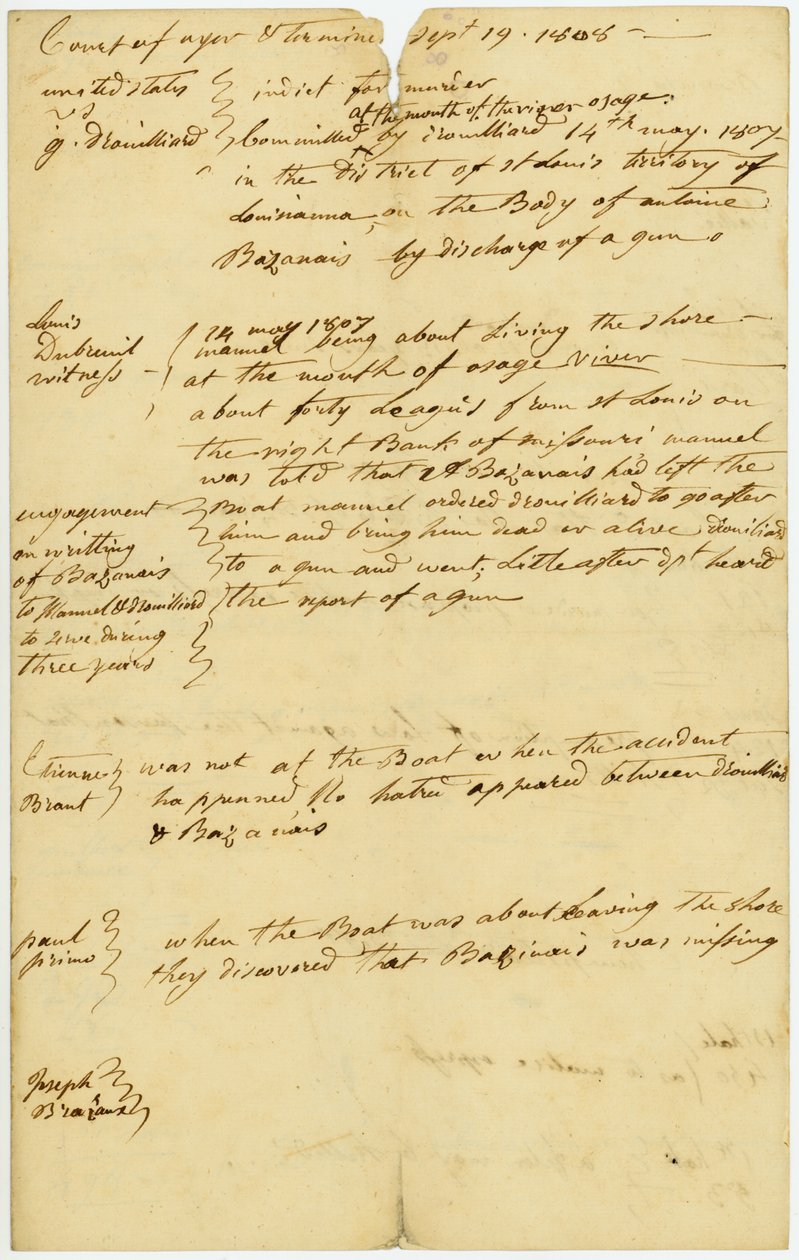 Court of oyer & terminer Sept 19. 1808
united states vs g. Drouilliard
indict for murder
at the mouth of the river osage.
Committed by Drouilliard 14th may. 1807
in the District of st Louis territory of
Louisianna, on the Body of antoine
Bazanais by discharge of a gun
Louis
Dubreuil
witness
14 may 1807
manuel being about Living the shore
at the mouth of osage river
about forty Leagues from st Louis on
the right Bank of missouri manuel
was told that A Bazanais had left the
Boat manuel ordered drouilliard to go after
him and bring him dead or alive Drouiliard
to a gun and went; Little after Dpt heard
the report of a gun
engagement
in writting
of Bazanais
to Manuel & drouilliard
to serve during
three years
Etienne
Brant
was not at the Boat when the accident
happenned, No hatred appeared between drouilliard
& Bazanais
paul
primo
when the Boat was about Leaving the shore
they discovered that Bazinais was missing
Joseph